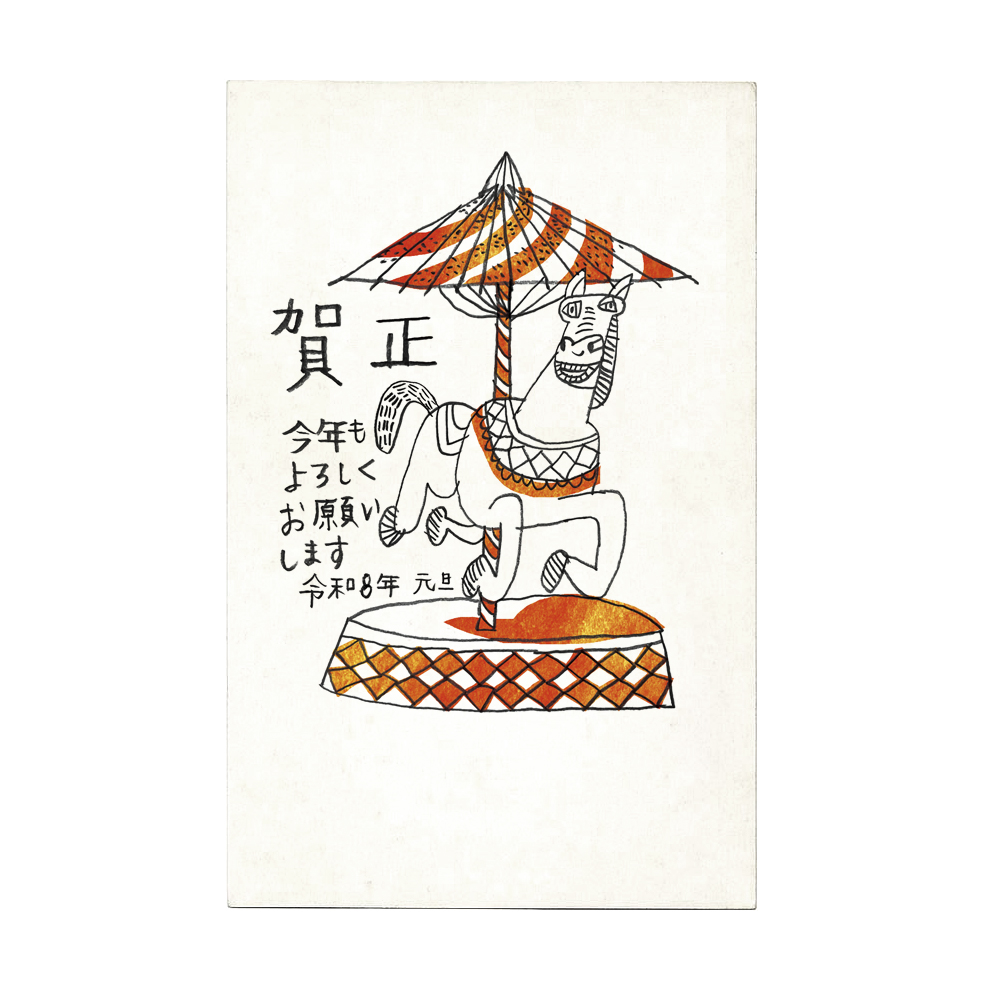 賀正
今年も
よろしく
お願い
します
令和8年 元旦